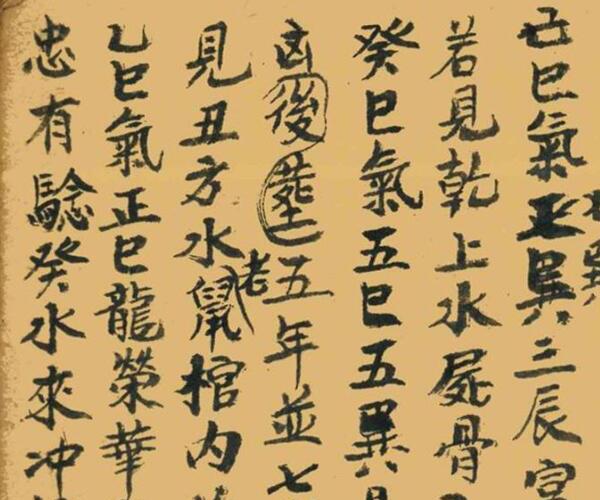 巳氣正巽三辰宫
若見乾上水屍骨
癸巳氣五巳五巽
凶後塟五年並七
見丑方水老鼠棺内
乙巳氣正巳龍榮華
忠有騐癸水來冲